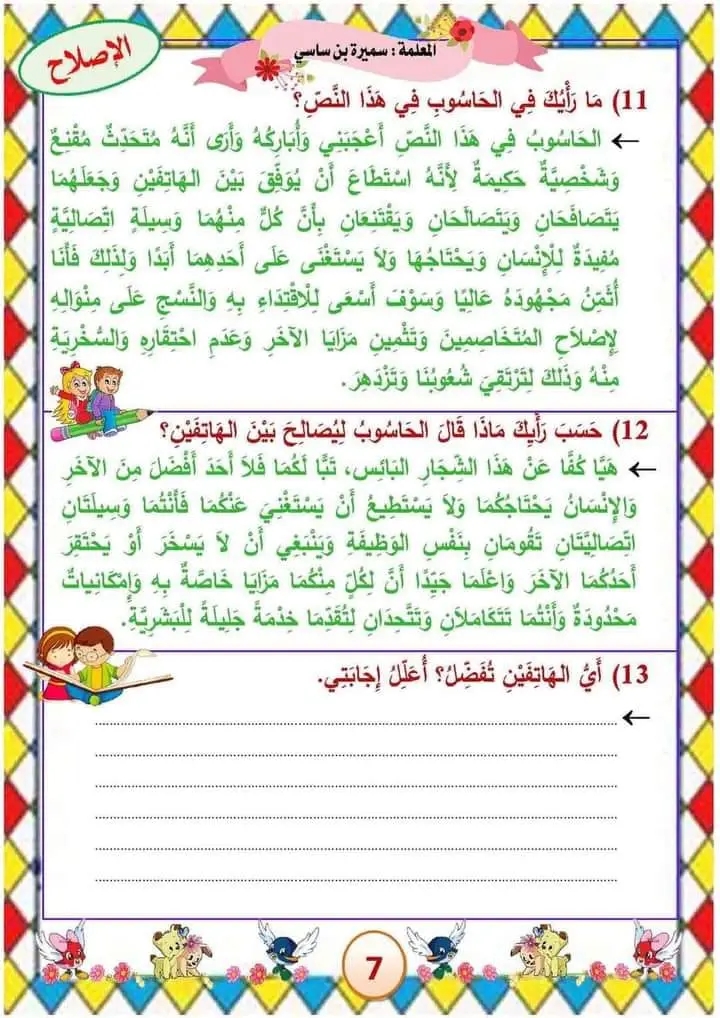 الإصلاح
المعلمة : سميرة بن ساسي
11) مَا رَأْيُكَ فِي الحَاسُوبِ فِي هَذَا النَّصِّ؟
← الحَاسُوبُ فِي هَذَا النَّصِّ أَعْجَبَنِي وَأُبَارِكُهُ وَأَرَى أَنَّهُ مُتَحَدِّثٌ مُقْنِعٌ
وَشَخْصِيَّةٌ حَكِيمَةٌ لِأَنَّهُ اسْتَطَاعَ أَنْ يُوَفِّقَ بَيْنَ الهَاتِفَيْنِ وَجَعَلَهُمَا
يَتَصَافَحَانِ وَيَتَصَالَحَانِ وَيَقْتَنِعَانِ بِأَنَّ كُلٌّ مِنْهُمَا وَسِيلَةٌ اتِّصَالِيَّةٍ
مُفِيدَةٌ لِلْإِنْسَانِ وَيَحْتَاجُهَا وَلاَ يَسْتَغْنَى عَلَى أَحَدِهِمَا أَبَدًا وَلِذَلِكَ فَأَنَا
أُثَمِّنُ مَجْهُودَهُ عَالِيًا وَسَوْفَ أَسْعَى لِلْاقْتِدَاءِ بِهِ وَالنَّسْجِ عَلَى مِنْوَالِهِ
لِإِصْلَاحِ المُتَخَاصِمِينَ وَتَثْمِينِ مَزَايَا الآخَرِ وَعَدَمِ احْتِقَارِهِ وَالسُّخْرِيَةِ
مِنْهُ وَذَلكَ لِتَرْتَقِيَ شُعُوبُنَا وَتَزْدَهِرَ.
12) حَسَبَ رَأْيِكَ مَاذَا قَالَ الحَاسُوبُ لِيُصَالِحَ بَيْنَ الهَاتِفَيْنِ؟
← هَيَّا كُفَّا عَنْ هَذَا الشِّجَارِ البَائِسِ، تَبًّا لَكُمَا فَلاَ أَحَدَ أَفْضَلَ مِنَ الآخَرِ
وَالإِنْسَانُ يَحْتَاجُكُمَا وَلاَ يَسْتَطِيعُ أَنْ يَسْتَغْنِيَ عَنْكُمَا فَأَنْتُمَا وَسِيلَتَانِ
اتِّصَالِيَّتَانِ تَقُومَانِ بِنَفْسِ الوَظِيفَةِ وَيَنْبَغِي أَنْ لاَ يَسْخَرَ أَوْ يَحْتَقِرَ
أَحَدُكُمَا الآخَرَ وَاعْلَمَا جَيِّدًا أَنَّ لِكُلٍّ مِنْكُمَا مَزَايَا خَاصَّةٌ بِهِ وَإِمْكَانِيَاتٌ
مَحْدُودَةٌ وَأَنْتُمَا تَتَكَامَلاَنِ وَتَتَّحِدَانِ لتُقَدِّمَا خِدْمَةً جَلِيلَةً لِلْبَشَرِيَّةِ.
13) أَيُّ الهَاتِفَيْنِ تُفَضِّلُ؟ أُعَلِّلُ إِجَابَتِي.
←
7